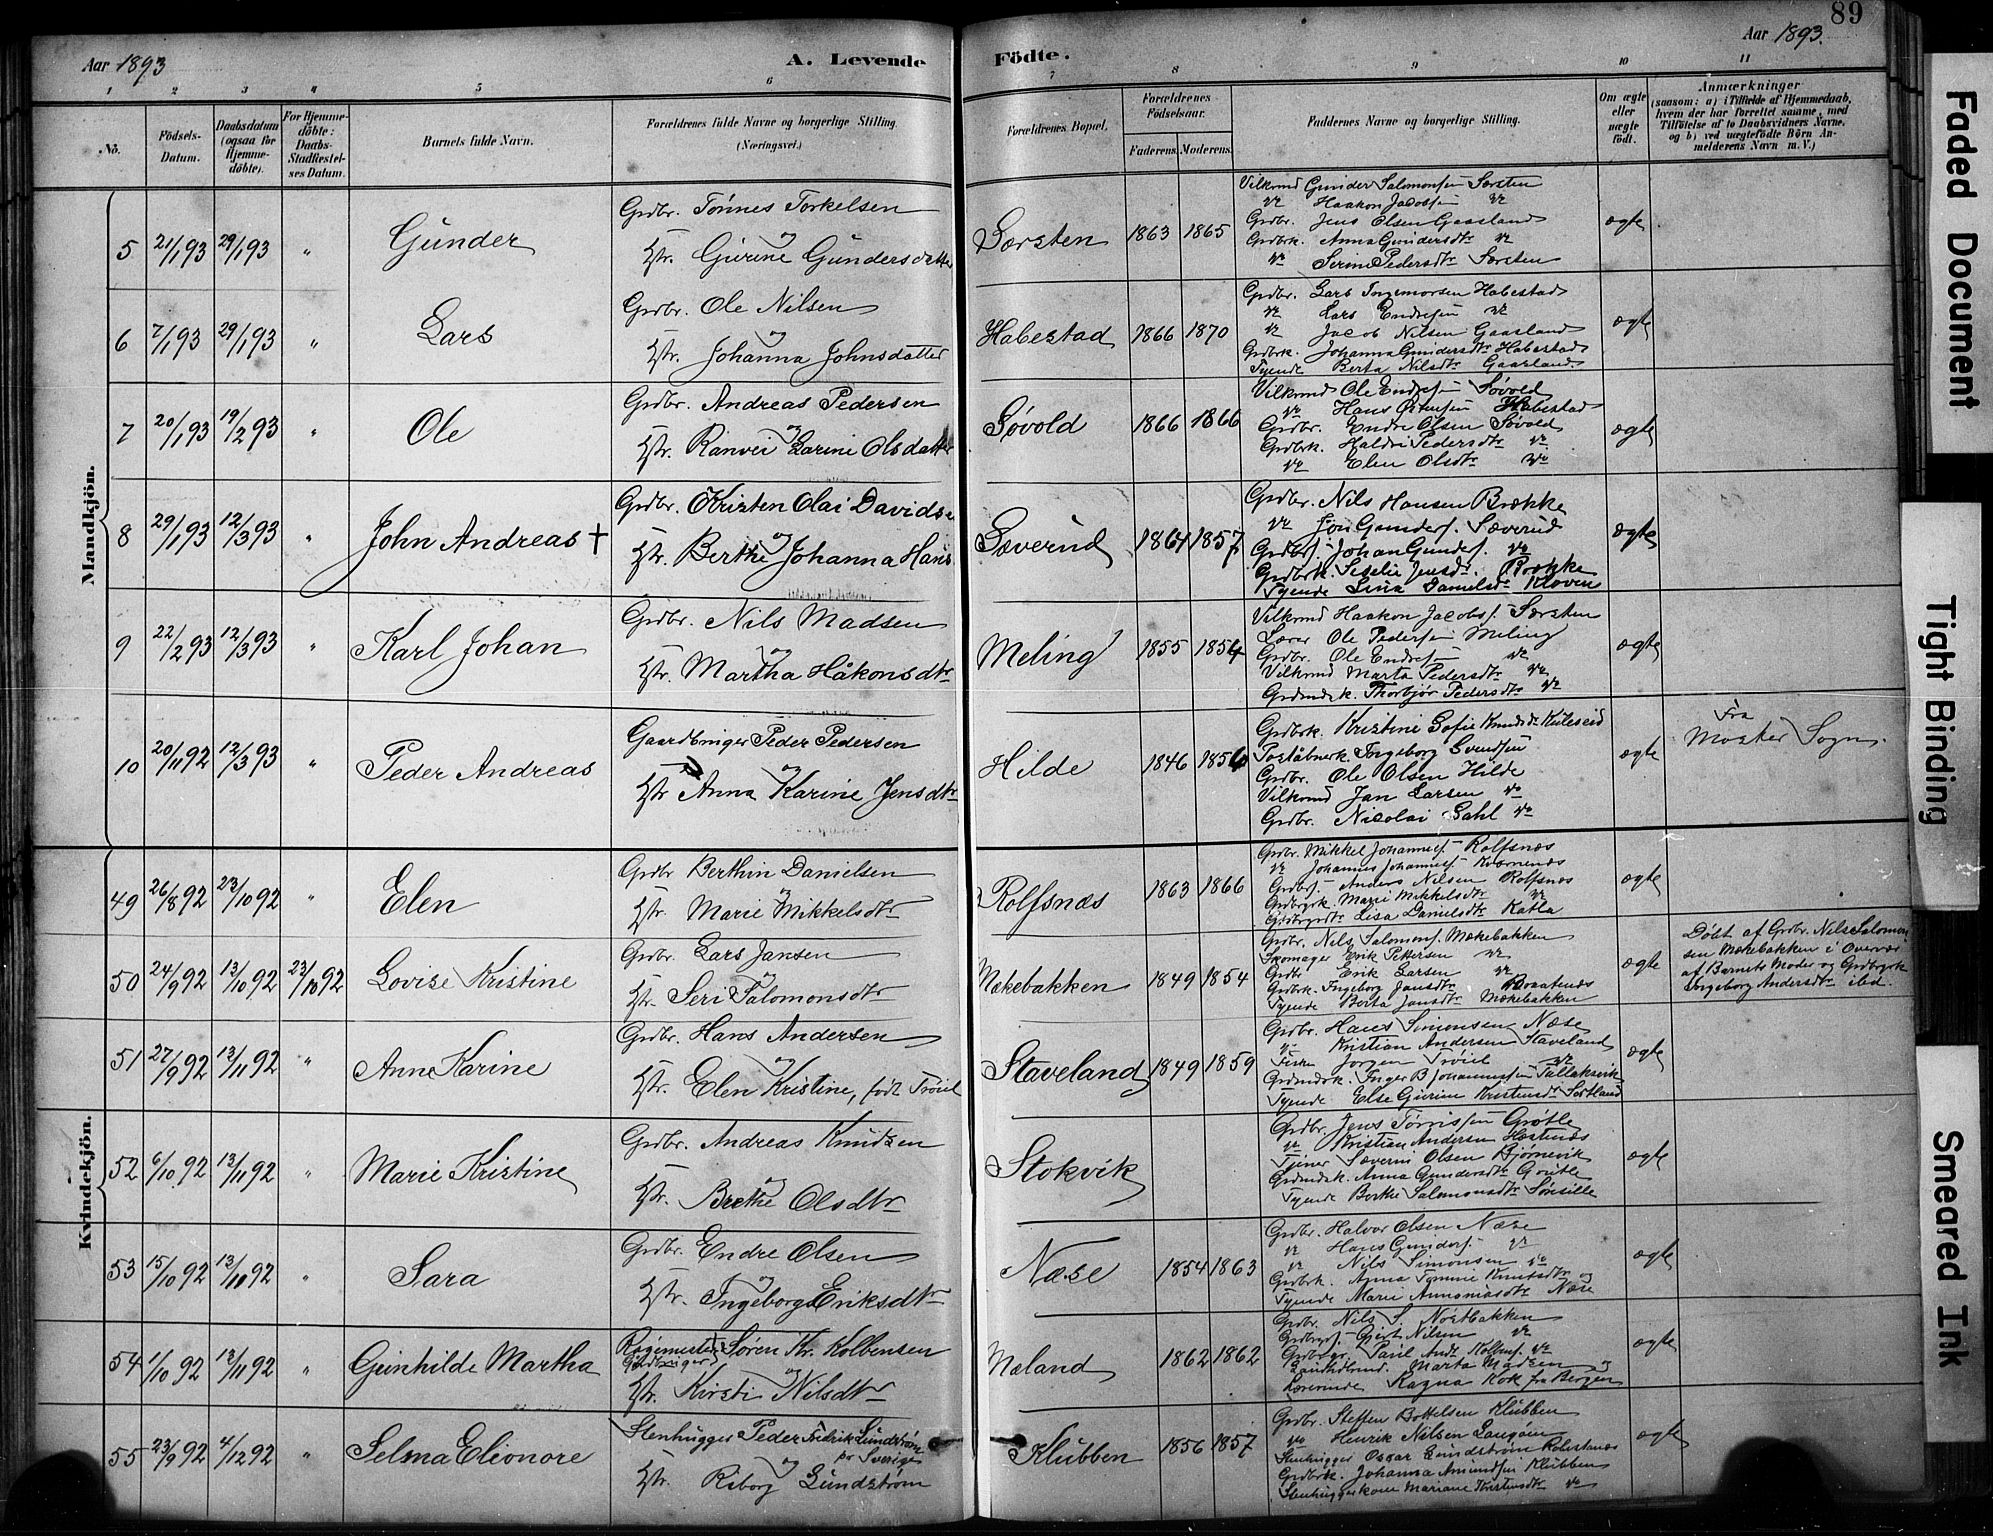 89
Aar 1893
A. Levende
Födte.
Aar 1893.
1 2 3 4 5 6 7 8 9 10 11
No.
Födsels-Datum.
Daabsdatum (ogsaa for Hjemme-döbte).
For Hjemme-döbte: Daabs-Stadfæstel-ses Datum.
Barnets fulde Navn.
Forældrenes fulde Navne og borgerlige Stilling.
(Næringsvei.)
Forældrenes Bopæl.
Forældrenes Födselsaar.
Faderens. Moderens.
Faddernes Navne og borgerlige Stilling.
Om ægte eller uægte födt.
Anmærkninger
(saasom: a) i Tilfælde af Hjemmedaab,
hvem der har forrettet samme, med
Tilföielse af to Daabsvidners Navne,
og b) ved uægtefödte Börn An-
melderens Navn m. V.)
Mandkjön.
5 21/1 93 29/1 93 " Gunder
Grdbr. Tönnes Torkelsen
og
Hstr. Gurine Gundersdatter
Særsten 1863 1865
Vilkrmd Gunder Salomonsen Særsten
do Haakon Jacobsen do
Grdbr. Jens Olsen Gaasland
Grdbrk. Anna Gundersdtr do
do Serine Pedersdtr Særsten
ægte
6 7/1 93 29/1 93 " Lars
Grdbr. Ole Nilsen
og
Hstr. Johanna Johnsdatter
Habestad 1866 1870
Grdbr. Lars Ingemorsen Habestad
do Lars Endresen do
do Jacob Nilsen Gaasland
Grdbrk. Johanna Gundersdtr Habestad
Tyende Berta Nilsdtr Gaasland
ægte
7 20/1 93 19/2 93 " Ole
Grdbr. Andreas Pedersen
og
Hstr. Ranvei Larine Olsdatter
Søvold 1866 1866
Vilkrmd Ole Endresen Søvold
do Hans Østensen Habestad
Grdbr. Endre Olsen Søvold
Grdbrk. Haldri Pedersdtr do
do Elen Olsdtr do
ægte
8 29/1 93 12/3 93 " John Andreas †
Grdbr. Kristen Olai Davidsen
og
Hstr. Berthe Johanna Hans
Sæverud 1864 1857
Grdbr. Nils Hansen Brække
do Jon Gunders. Sæverud
Grdbrs. Johan Gunders. do
Grdbrk. Seselie Jensdr. Brække
Tyende Lina Danielsdr Kloven
ægte
9 22/2 93 12/3 93 " Karl Johan
Grdbr. Nils Madsen
og
Hstr. Martha Håkonsdtr
Meling 1855 1854
Vilkrmd Haakon Jacobs. Særsten
Lærer Ole Pedersen Meling
Grdbr. Ole Endresen do
Vilkrmd Marta Pedersdtr do
Grdmdsk. Thorbjør Pedersdtr do
ægte
10 20/11 92 12/3 93 " Peder Andreas
Gaardbruger Peder Pedersen
og
Hstr Anna Karine Jensdtr
Hilde 1846 1854
Grdbrk. Kristine Sofie Knudsdr Kuleseid
Poståbnerk. Ingeborg Svendsen
Grdbr. Ole Olsen Hilde
Vilkrmd Jan Larsen do
Grdbr. Nicolai Sahl do
ægte
Fra
Moster Sogn.
Kvindekjön.
49 26/8 92 23/10 92 " Elen
Grdbr Berthin Danielsen
og
Hstr. Marie Mikkelsdtr
Rolfsnæs 1863 1866
Grdbr. Mikkel Johannes. Rolfsnæs
do Johannes Johannes. Kværnenæs
Grdbrs. Anders Nilsen Rolfsnæs
Grdbrgrk. Marie Mikkelsdtr do
Grdbrgrdtr Lisa Danielsdtr Katla
ægte
50 24/9 92 13/10 92 23/10 92 Lovise Kristine
Grdbr. Lars Jansen
og
Hstr. Seri Salomonsdtr
Mækebakken 1849 1854
Grdbr. Nils Salomons. Mækebakken
Skomager Erik Pettersen do
Grdbr Erik Larsen do
Grdbrk. Ingeborg Jansdtr
Tyende Berta Jansdtr Mækebakken
ægte
Döbt af Grdbr. Nils Salomon
sen Mækebakken i Overvær
af Barnets Moder og Grdbrgrk
Ingeborg Andersdtr ibd.
51 27/9 92 13/11 92 " Anne Karine
Grdbr. Hans Andersen
og
Hstr. Elen Kristine, född Tröiel
Staveland 1849 1859
Grdbr. Hans Simonsen Næse
do Kristian Andersen Staveland
Jörgen Tröiel do
Grdmdsk. Inger B Johannessen Tallaksvik
Tyende Else Gurine Kristensdr Sortland
ægte
52 6/10 92 13/11 92 " Marie Kristine
Grdbr. Andreas Knudsen
og
Hstr. Brethe Olsdtr
Stokvik
Grdbr. Jens Tørrissen Grötle
do Kristian Andersen Hestenæs
Tjener Severin Olsen Bjørnevik
Grdmdsk. Anna Gundersdtr Grötle
Tyende Berthe Salomonsdtr Sønsille
ægte
53 15/10 92 13/11 92 " Sara
Grdbr. Endre Olsen
og
Hstr. Ingeborg Eriksdtr
Næse 1854 1863
Grdbr. Halvor Olsen Næse
do Hans Gunders. do
do Nils Simonsen do
Grdbrk. Anna Tomine Knutsdtr og
Tyende Marie Annaniasdtr Næse
ægte
54 1/10 92 13/11 92 " Gunhilde Martha
Søren Kr. Kolbensen
Gårdbruger
og
Hstr. Kirsti Nilsdtr
Mæland 1862 1862
Grdbr. Nils S. Nostbakken
Grdbrgs. Gjert Nilsen do
Paul Andr. Kolbens. do
Marta Madsen og
Lærerinde Ragna Kok fra Bergen
ægte
55 23/9 92 4/12 92 " Selma Elionore
Stenhugger Peder Fredrik Lundström
fr Sverige
og
Hstr. Riborg Lundstrøm
Klubben 1856 1857
Grdbr. Steffen Bottelsen Klubben
do Henrik Nilsen Langøen
Stenhugger Oscar Lundstrøm Robestanæs
Grdbrk. Johanna Amundsen Klubben
Stenhuggerkone Mariane Kristensdtr do
ægte
Faded Document
Tight Binding
Smeared Ink